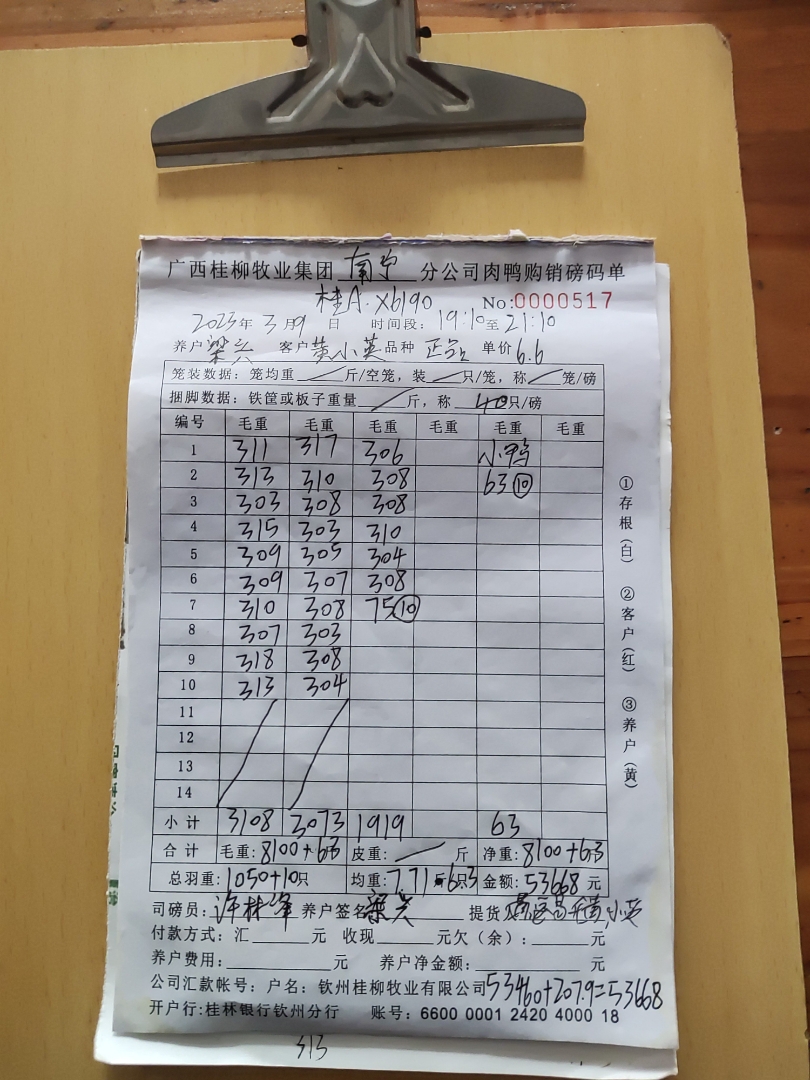 广西桂柳牧业集团 南宁 分公司肉鸭购销磅码单
桂A·X6190 No:0000517
2023年 3月9日 时间段: 19:10至21:10
养户 梁兴 客户 黄小英 品种 正品 单价 6.6
笼装数据: 笼均重 / 斤/空笼, 装 / 只/笼, 称 / 笼/磅
捆脚数据: 铁筐或板子重量 / 斤, 称 40只/磅
编号 毛重 毛重 毛重 毛重 毛重 毛重
1 311 317 306 小鸭
2 313 310 308 63⑩
3 303 308 308
4 315 303 310
5 309 305 304
6 309 307 308
7 310 308 75⑩
8 307 303
9 318 308
10 313 304
11
12
13
14
小计 3108 3073 1919 63
合计 毛重: 8100+63 皮重: / 斤 净重: 8100+63
总羽重: 1050+10只 均重: 7.71 6.3 金额: 53668 元
司磅员: 许林峰 养户签名 梁兴 提货
付款方式: 汇 元 收现 元欠(余): 元
养户费用: 元 养户净金额: 元
公司汇款帐号: 户名: 钦州桂柳牧业有限公司 53460+207.9=53668
开户行:桂林银行钦州分行 账号: 6600 0001 2420 4000 18
①存根(白) ②客户(红) ③养户(黄)
313